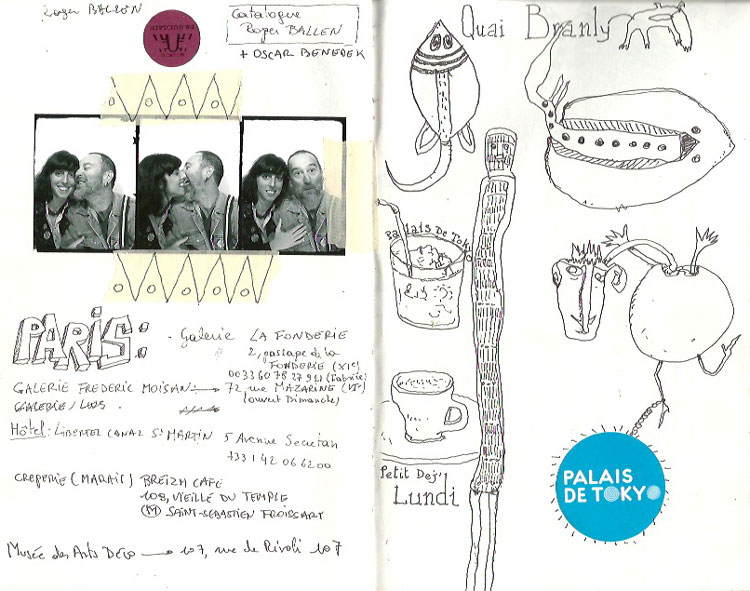 Roger BALLEN
Catalogue
Roger BALLEN
+ OSCAR BENEDEK
PARIS:
- Galerie LA FONDERIE
2, passage de la
FONDERIE (XIe)
72, rue MAZARINE (VIe)
(ouvert Dimanche)
GALERIE FREDERIC MOISAN
GALERIE/
Hôtel: LIBERTEL CANAL St MARTIN 5 Avenue Secretan
+33 1 42 06 62 00
CREPERIE (MARAIS) BREIZH CAFÉ
109, VIEILLE DU TEMPLE
(M) SAINT-SEBASTIEN FROISSART
Musée des Arts Déco → 107, rue de Rivoli 107
Quai Branly
Palais De Tokyo
Petit Dej'
Lundi
PALAIS
DE TOKYO